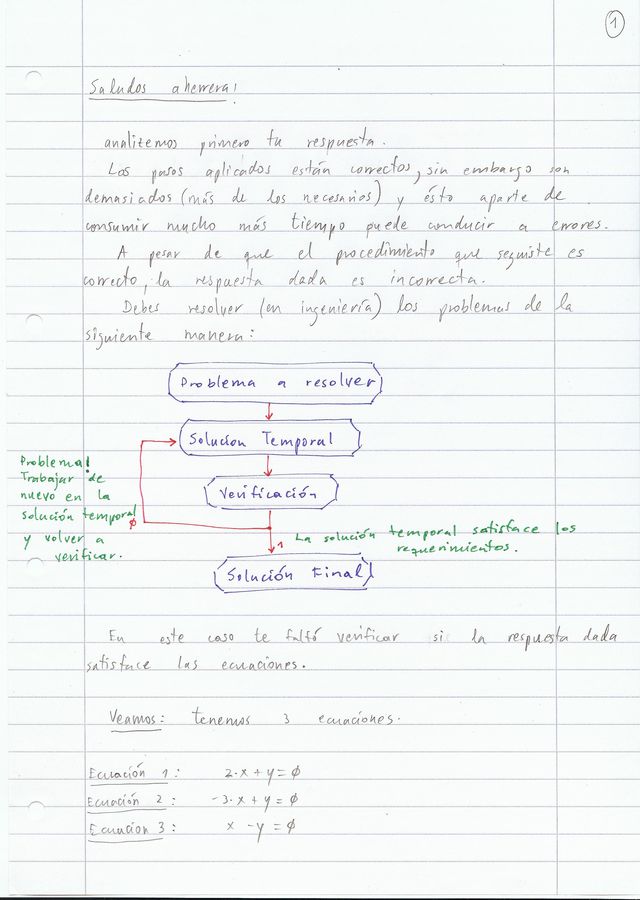 1
Saludos aherrera!
analizemos primero tu respuesta.
Los pasos aplicados están correctos, sin embargo son
demasiados (más de los necesarios) y ésto aparte de
consumir mucho más tiempo puede conducir a errores.
A pesar de que el procedimiento que seguiste es
correcto, la respuesta dada es incorrecta.
Debes resolver (en ingeniería) los problemas de la
siguiente manera:
Problema a resolver
Solución Temporal
Verificación
Problema!
Trabajar de
nuevo en la
solución temporal
y volver a
verificar.
0
1 La solución temporal satisface los
requerimientos.
Solución Final
En este caso te faltó verificar si la respuesta dada
satisface las ecuaciones.
Veamos: tenemos 3 ecuaciones.
Ecuación 1: 2·x+y=∅
Ecuación 2: -3·x+y=∅
Ecuacion 3: x-y=∅